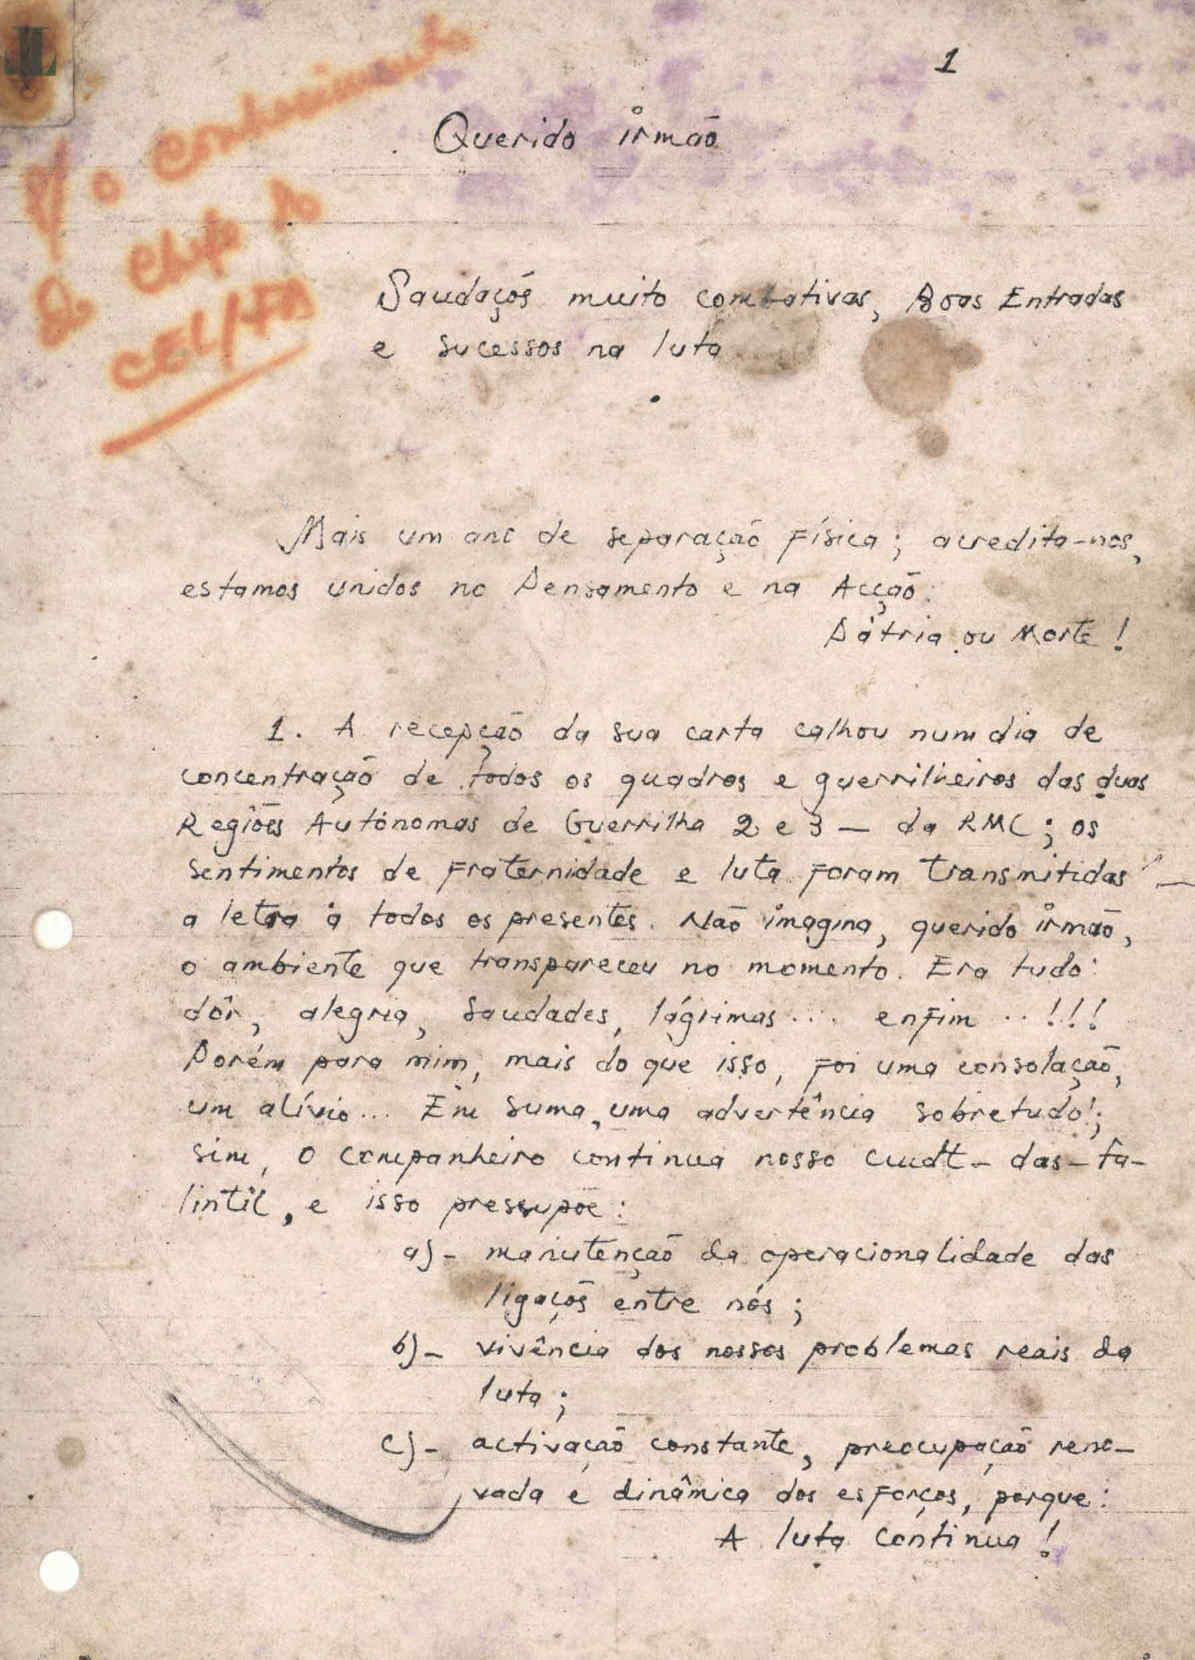 1
P/ o Conhecimento
do Chefe do
CEL/FA
Querido irmão
Saudaçõs muito combativas, Boas Entradas
e sucessos na luta
Mais um ano de separação física; acredita-nos,
estamos unidos no Pensamento e na Acção.
Pátria ou Morte!
1. A recepção da sua carta calhou num dia de
concentração de todos os quadros e guerrilheiros das duas
Regiões Autónomas de Guerrilha 2 e 3 — da RMC; os
sentimentos de fraternidade e luta foram transmitidas —
a letra a todos os presentes. Não imagina, querido irmão,
o ambiente que transpareceu no momento. Era tudo:
dôr, alegria, saudades, lágrimas ... enfim ..!!!
Porém para mim, mais do que isso, foi uma consolação,
um alívio... Em suma, uma advertência sobretudo!;
sim, o companheiro continua nosso cmdt-das-fa-
lintil, e isso pressupõe:
a)- manutenção da operacionalidade das
ligaçõs entre nós;
b)- vivência dos nossos problemas reais da
luta;
c)- activação constante, preocupação reno-
vada e dinâmica dos esforços, porque:
A luta continua!